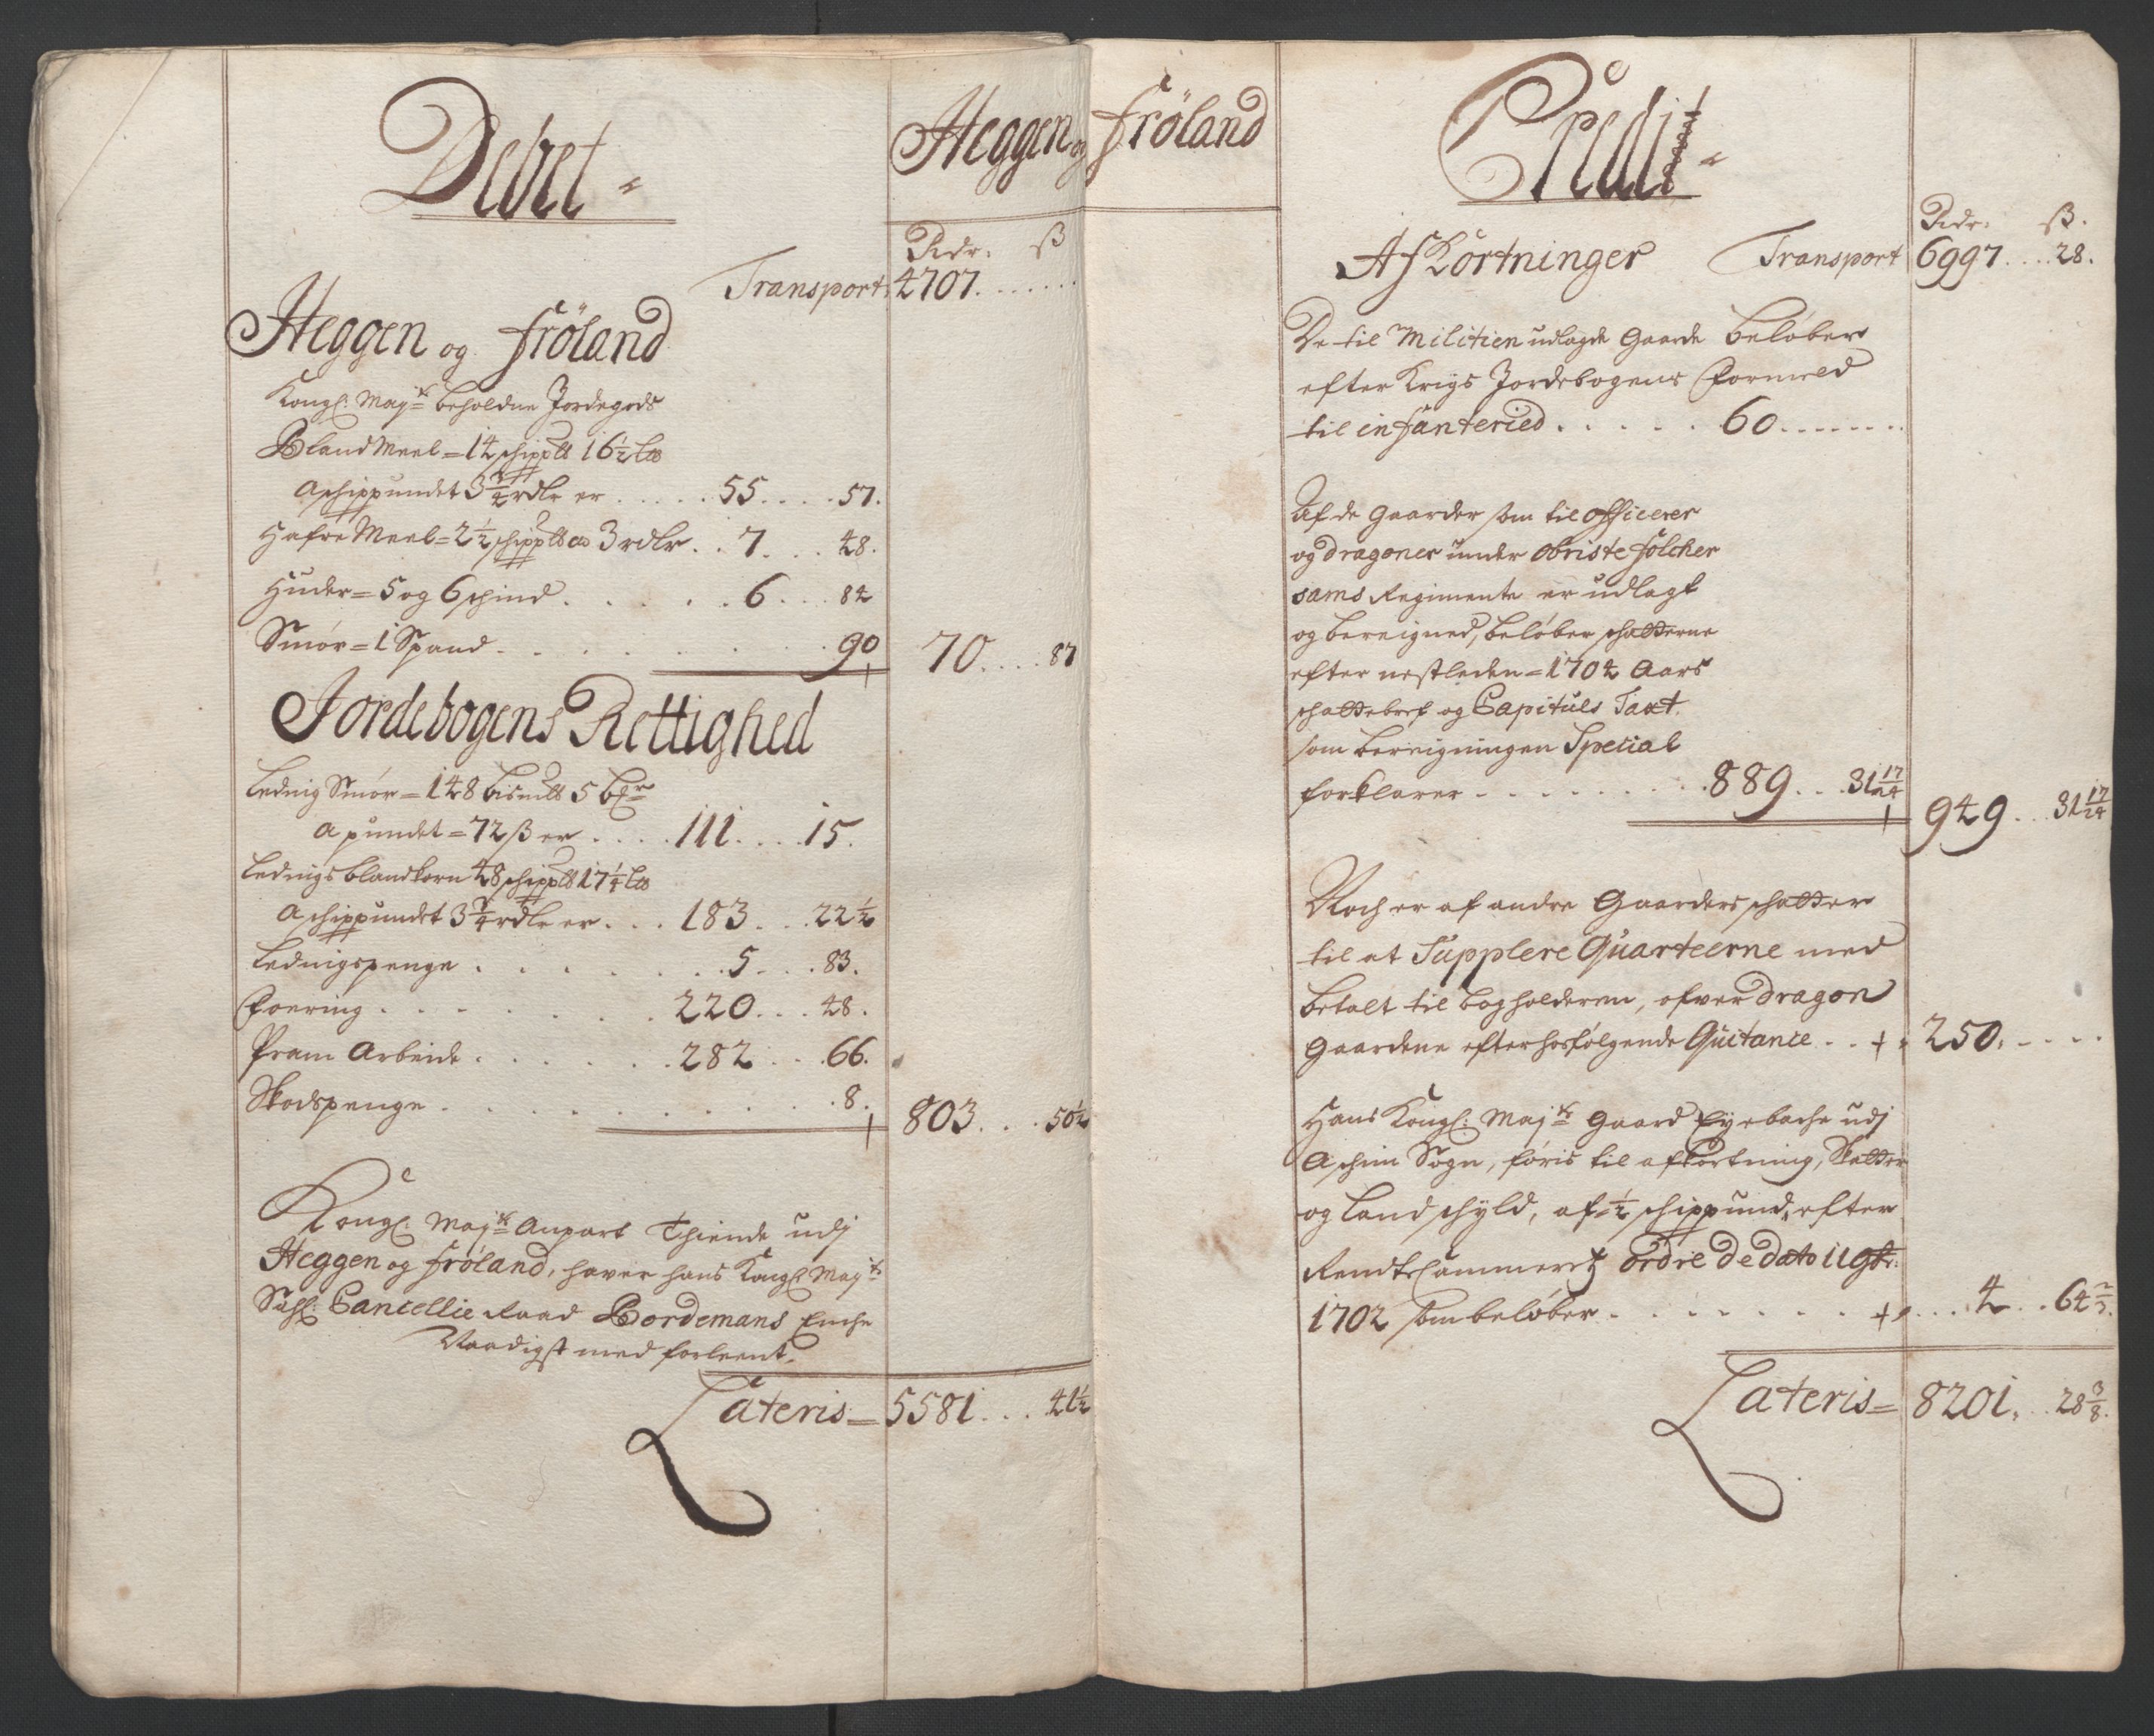 Debet
Heggen og Fröland
Rdr. ß
Transport 4707
Heggen og Fröland
Kongl: Majts beholdne Jordegods
Bland Meel = 14 schippd 16½ Lb
A schippundet 3¾ rdlr er 55 57.
Hafre Meel = 2½ schippd a 3 rdlr 7 48.
Huder = 5 og 6 schind 6 84
Smör = 1 Spand 90 70 87
Jordebogens Rettighed
Leding Smör = 148 bismd 5
A pundet = 72 ß er 111 15.
Ledings blandkorn 48 schippd 17¼ Lb
A schippundet 3¾ rdlr er 183 22½
Ledingspenge 5 83.
Foering 220 48.
Pram Arbeide 282 66.
Skodspenge 8. 803 50½
Kongl: Majts Anpart Thiende udj
Heggen og Fröland, haver hans Kongl Majts
Sahl: Cancellie Raad Bordemans Enche
Naadigst med forleent.
Lateris = 5581 41½
Credit
Rdr. ß.
Afkortninger Transport 6997 28.
De til Militien udlagde Gaarde beløber
efter Krigs Jordebogens Formeld
til infanteried 60
Af de Gaarder som til officerer
og dragoner under obriste Fölcher
sams Regimente er udlagt
og bereigned, beløber schatterne
efter nestleden = 1704 Aars
schattebref og Capituls Taxt.
som bereigningen Special
forklarer 889 31 17/24 949 31 17/24
Noch er af andre Gaarders schatter
til at Supplere Quarteerne med
betalt til bogholderen, ofver dragon
Gaardene efter hosfølgende Quitance 250.
Hans Kongl: Majts Gaard Eyebache udj
Aschim Sogn, føris til afkortning, Skatter
og Landschyld, af ½ schippund, efter
Rendte Cammerets ordre de dato 11 9br:
1702 som beløber 4 64 2/3.
Lateris = 8201. 28 3/8.